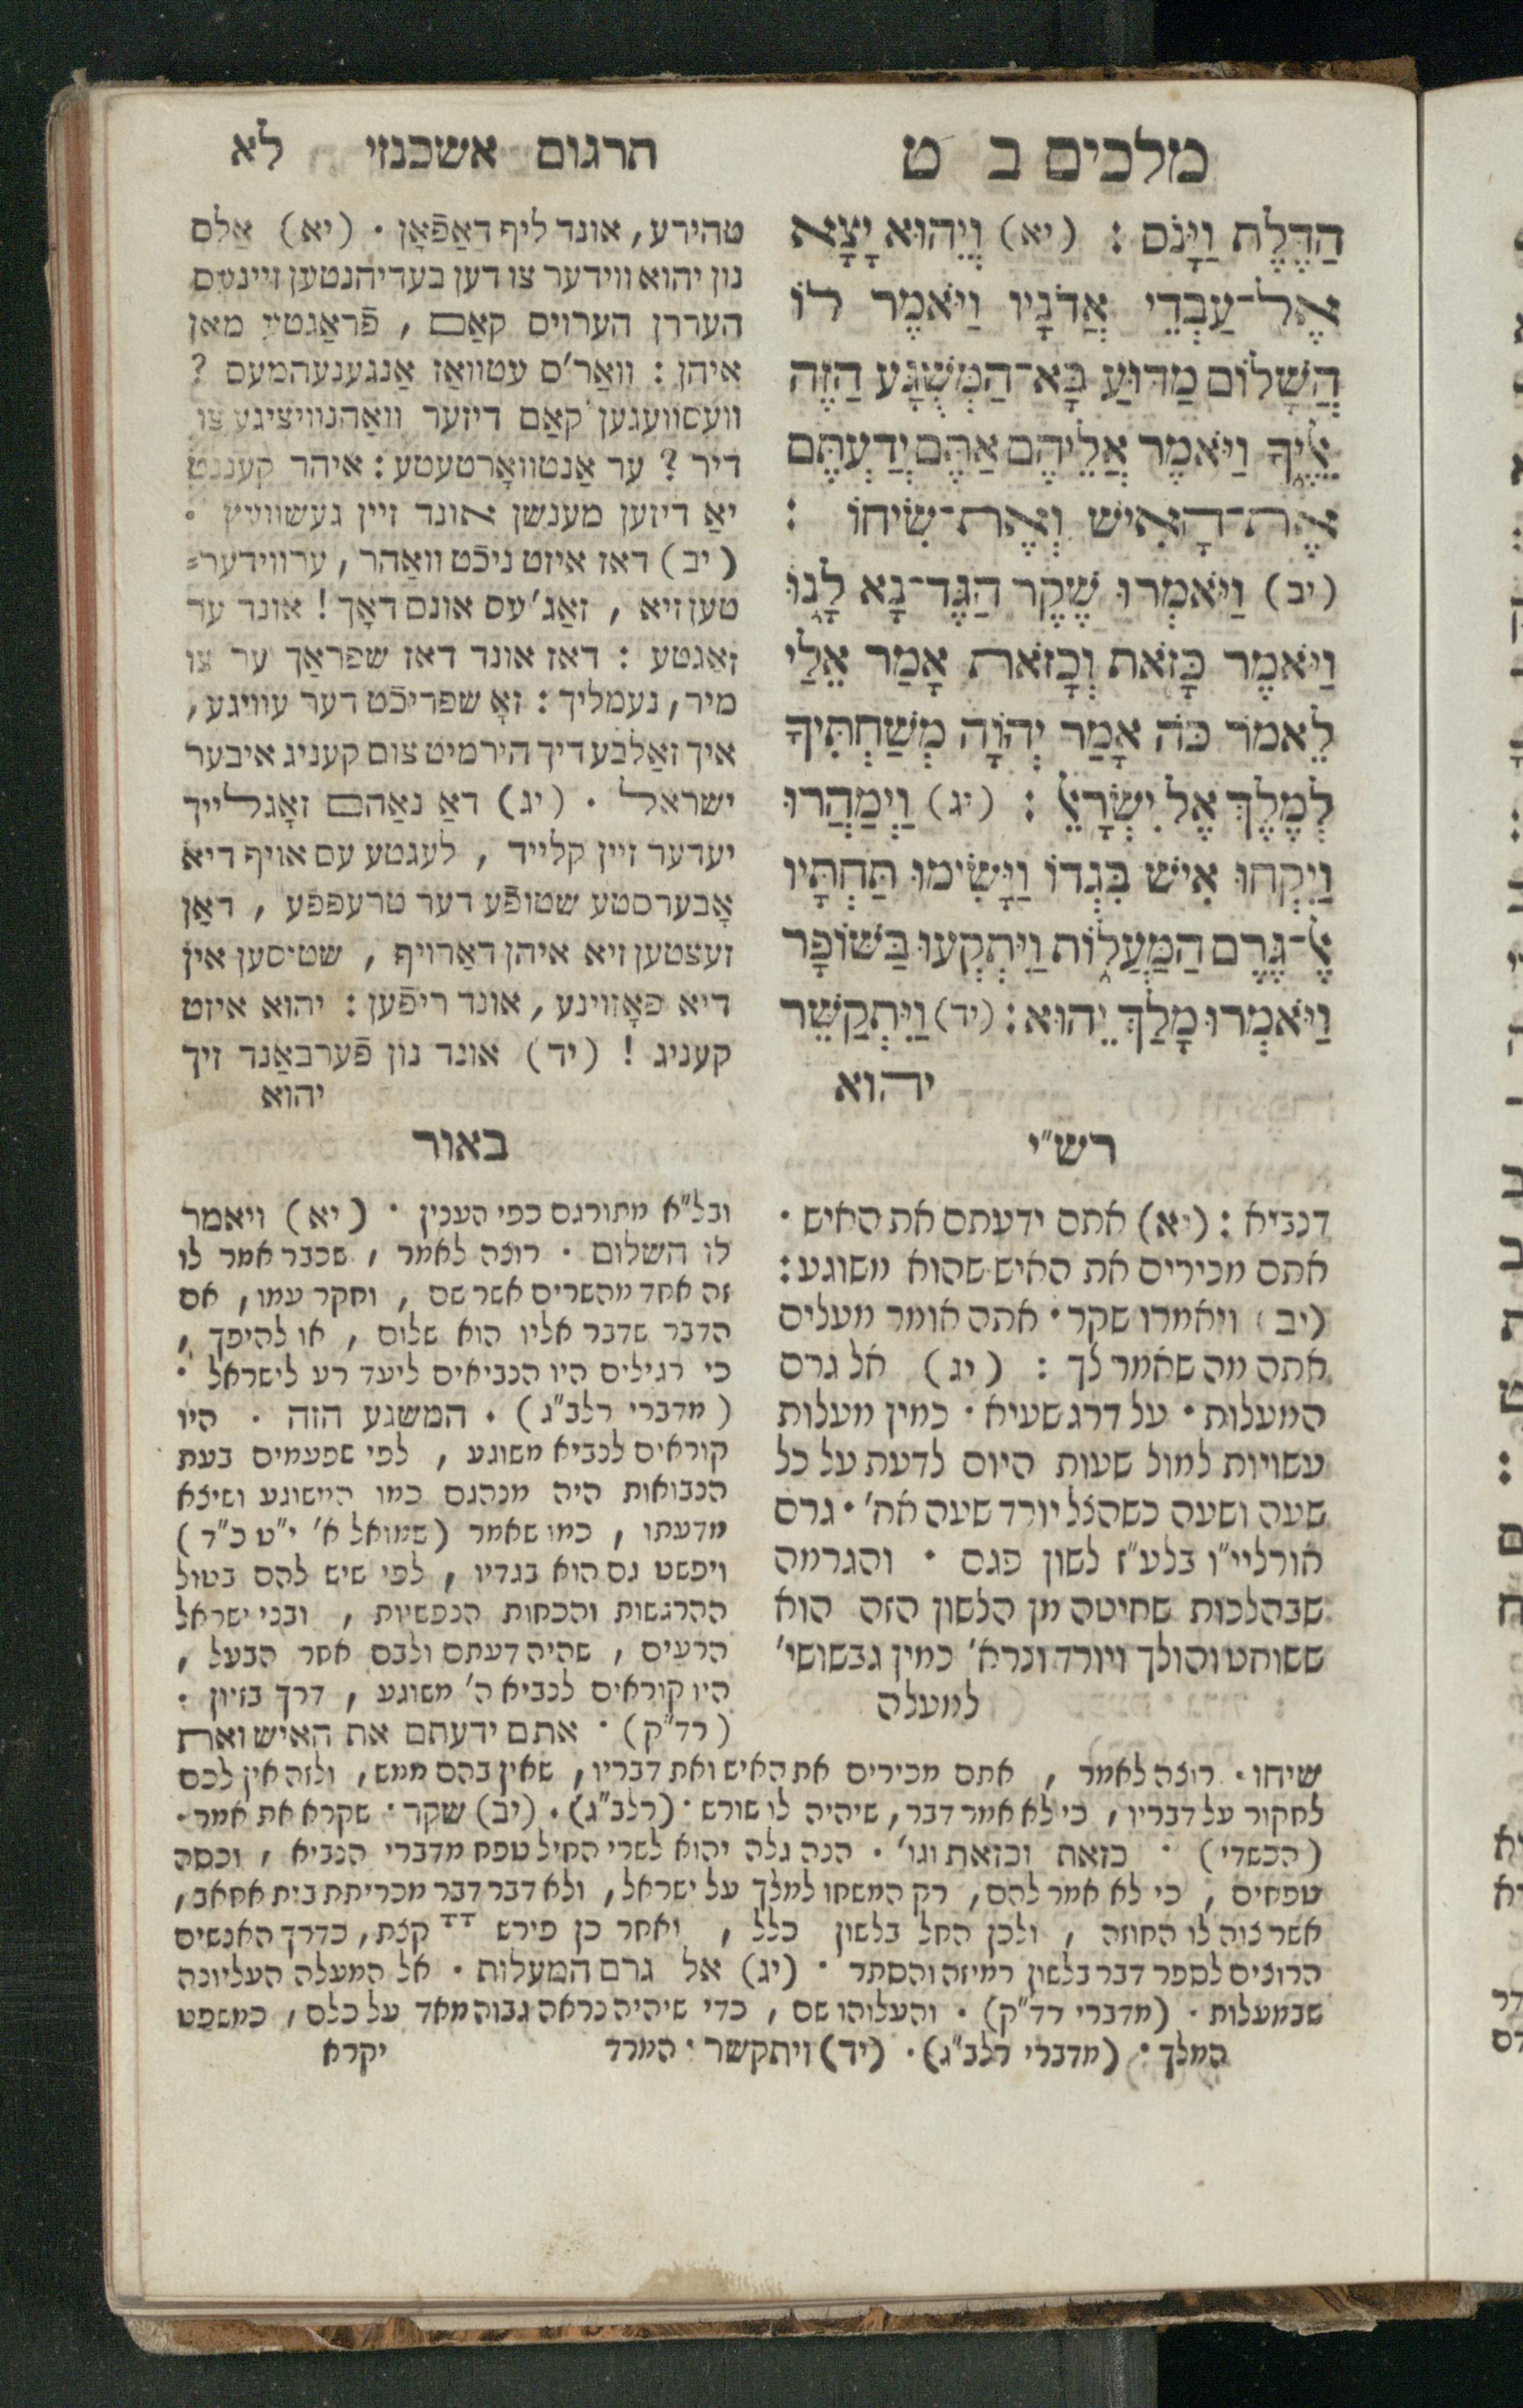 מלכים ב ט
הַדֶּלֶת וַיָּנֹס : (יא) וְיֵהוּא יָצָא
אֶל־עַבְדֵי אֲדֹנָיו וַיֹּאמֶר לוֹ
הֲשָׁלוֹם מַדּוּעַ בָּא־הַמְשֻׁגָּע הַזֶּה
אֵלֶיךָ וַיֹּאמֶר אֲלֵיהֶם אַתֶּם יְדַעְתֶּם
אֶת־הָאִישׁ וְאֶת־שִׂיחוֹ :
(יב) וַיֹּאמְרוּ שֶׁקֶר הַגֶּד־נָא לָנוּ
וַיֹּאמֶר כָּזֹאת וְכָזֹאת אָמַר אֵלַי
לֵאמֹר כֹּה אָמַר יְהוָֹה מְשַׁחְתִּיךָ
לְמֶלֶךְ אֶל יִשְׂרָאֵל : (יג) וַיְמַהֲרוּ
וַיִּקְחוּ אִישׁ בִּגְדוֹ וַיָּשִׂימוּ תַחְתָּיו
אֶל־גֶּרֶם הַמַּעֲלוֹת וַיִּתְקְעוּ בַּשּׁוֹפָר
וַיֹּאמְרוּ מָלַךְ יֵהוּא : (יד) וַיִּתְקַשֵּׁר
יהוא
תרגום אשכנזי לא
טהירע, אונד ליף דאַפֿאָן . (יא) אַלס
נון יהוא ווידער צו דען בעדיהנטען זיינעס
העררן הערויס קאַם , פֿראַגטע מאן
איהן : וואַר'ס עטוואַז אַנגענעהמעס ?
וועסוועגען קאַם דיזער וואַהנוויציגע צו
דיר ? ער אַנטוואָרטעטע : איהר קעננט
יאַ דיזען מענשן אונד זיין געשוועץ .
(יב) דאז איזט ניכֿט וואַהר , ערווידער=
טען זיא , זאַג'עס אונס דאָך ! אונד ער
זאַגטע : דאז אונד דאז שפראַך ער צו
מיר, נעמליך : זאָ שפריכֿט דער עוויגע,
איך זאַלבע דיך הירמיט צום קעניג איבער
ישראל . (יג) דאַ נאַהם זאָגלייך
יעדער זיין קלייד , לעגטע עס אויף דיא
אָבערסטע שטופֿע דער טרעפפע , דאַן
זעצטען זיא איהן דאַרויף , שטיסען אין
דיא פאָזוינע, אונד ריפֿען : יהוא איזט
קעניג ! (יד) אונד נון פֿערבאַנד זיך
יהוא
רש"י
דנביא : (יא) אתם ידעתם את האיש .
אתם מכירים את האיש שהוא משוגע :
(יב) ויאמרו שקר . אתה אומר מעלים
אתה מה שאמר לך : (יג) אל גרם
המעלות . על דרג שעיא . כמין מעלות
עשויות למול שעות היום לדעת על כל
שעה ושעה כשהצל יורד שעה אח' . גרם
אורליי"ו בלע"ז לשון פגם . והגרמה
שבהלכות שחיטה מן הלשון הזה הוא
ששוחט והולך ויורד ונרא' כמין גבשושי'
למעלה
באור
ובל"א מתורגם כפי הענין . (יא) ויאמר
לו השלום . רוצה לאמר , שכבר אמר לו
זה אחד מהשרים אשר שם , וחקר עמו, אם
הדבר שדבר אליו הוא שלום , או להיפך ,
כי רגילים היו הנביאים ליעד רע לישראל .
(מדברי רלב"ג) . המשגע הזה . היו
קוראים לנביא משוגע , לפי שפעמים בעת
הנבואות היה מנהגם כמו המשוגע ושיצא
מדעתו , כמו שאמר (שמואל א' י"ט כ"ד)
ויפשט גם הוא בגדיו , לפי שיש להם בטול
ההרגשות והכחות הנפשיות , ובני ישראל
הרעים , שהיה דעתם ולבם אחר הבעל ,
היו קוראים לנביא ה' משוגע , דרך בזיון .
(רד"ק) . אתם ידעתם את האיש ואת
שיחו . רוצה לאמר , אתם מכירים את האיש ואת דבריו, שאין בהם ממש, ולזה אין לכם
לחקור על דבריו , כי לא אמר דבר, שיהיה לו שורש . (רלב"ג) . (יב) שקר . שקרא את אמר .
(הכשדי) . כזאת וכזאת וגו' . הנה גלה יהוא לשרי החיל טפח מדברי הנביא , וכסה
טפחים , כי לא אמר להם, רק המשחו למלך על ישראל, ולא דבר דבר מכריתת בית אחאב,
אשר צוה לו החוזה , ולכן החל בלשון כלל , ואחר כן פירש קצת, כדרך האנשים
הרוצים לספר דבר בלשון רמיזה והסתר . (יג) אל גרם המעלות . אל המעלה העליונה
שבמעלות . (מדברי רד"ק) . והעלוהו שם , כדי שיהיה נראה גבוה מאד על כלם, כמשפט
המלך . (מדברי רלב"ג) . (יד) ויתקשר . המרד
יקרא